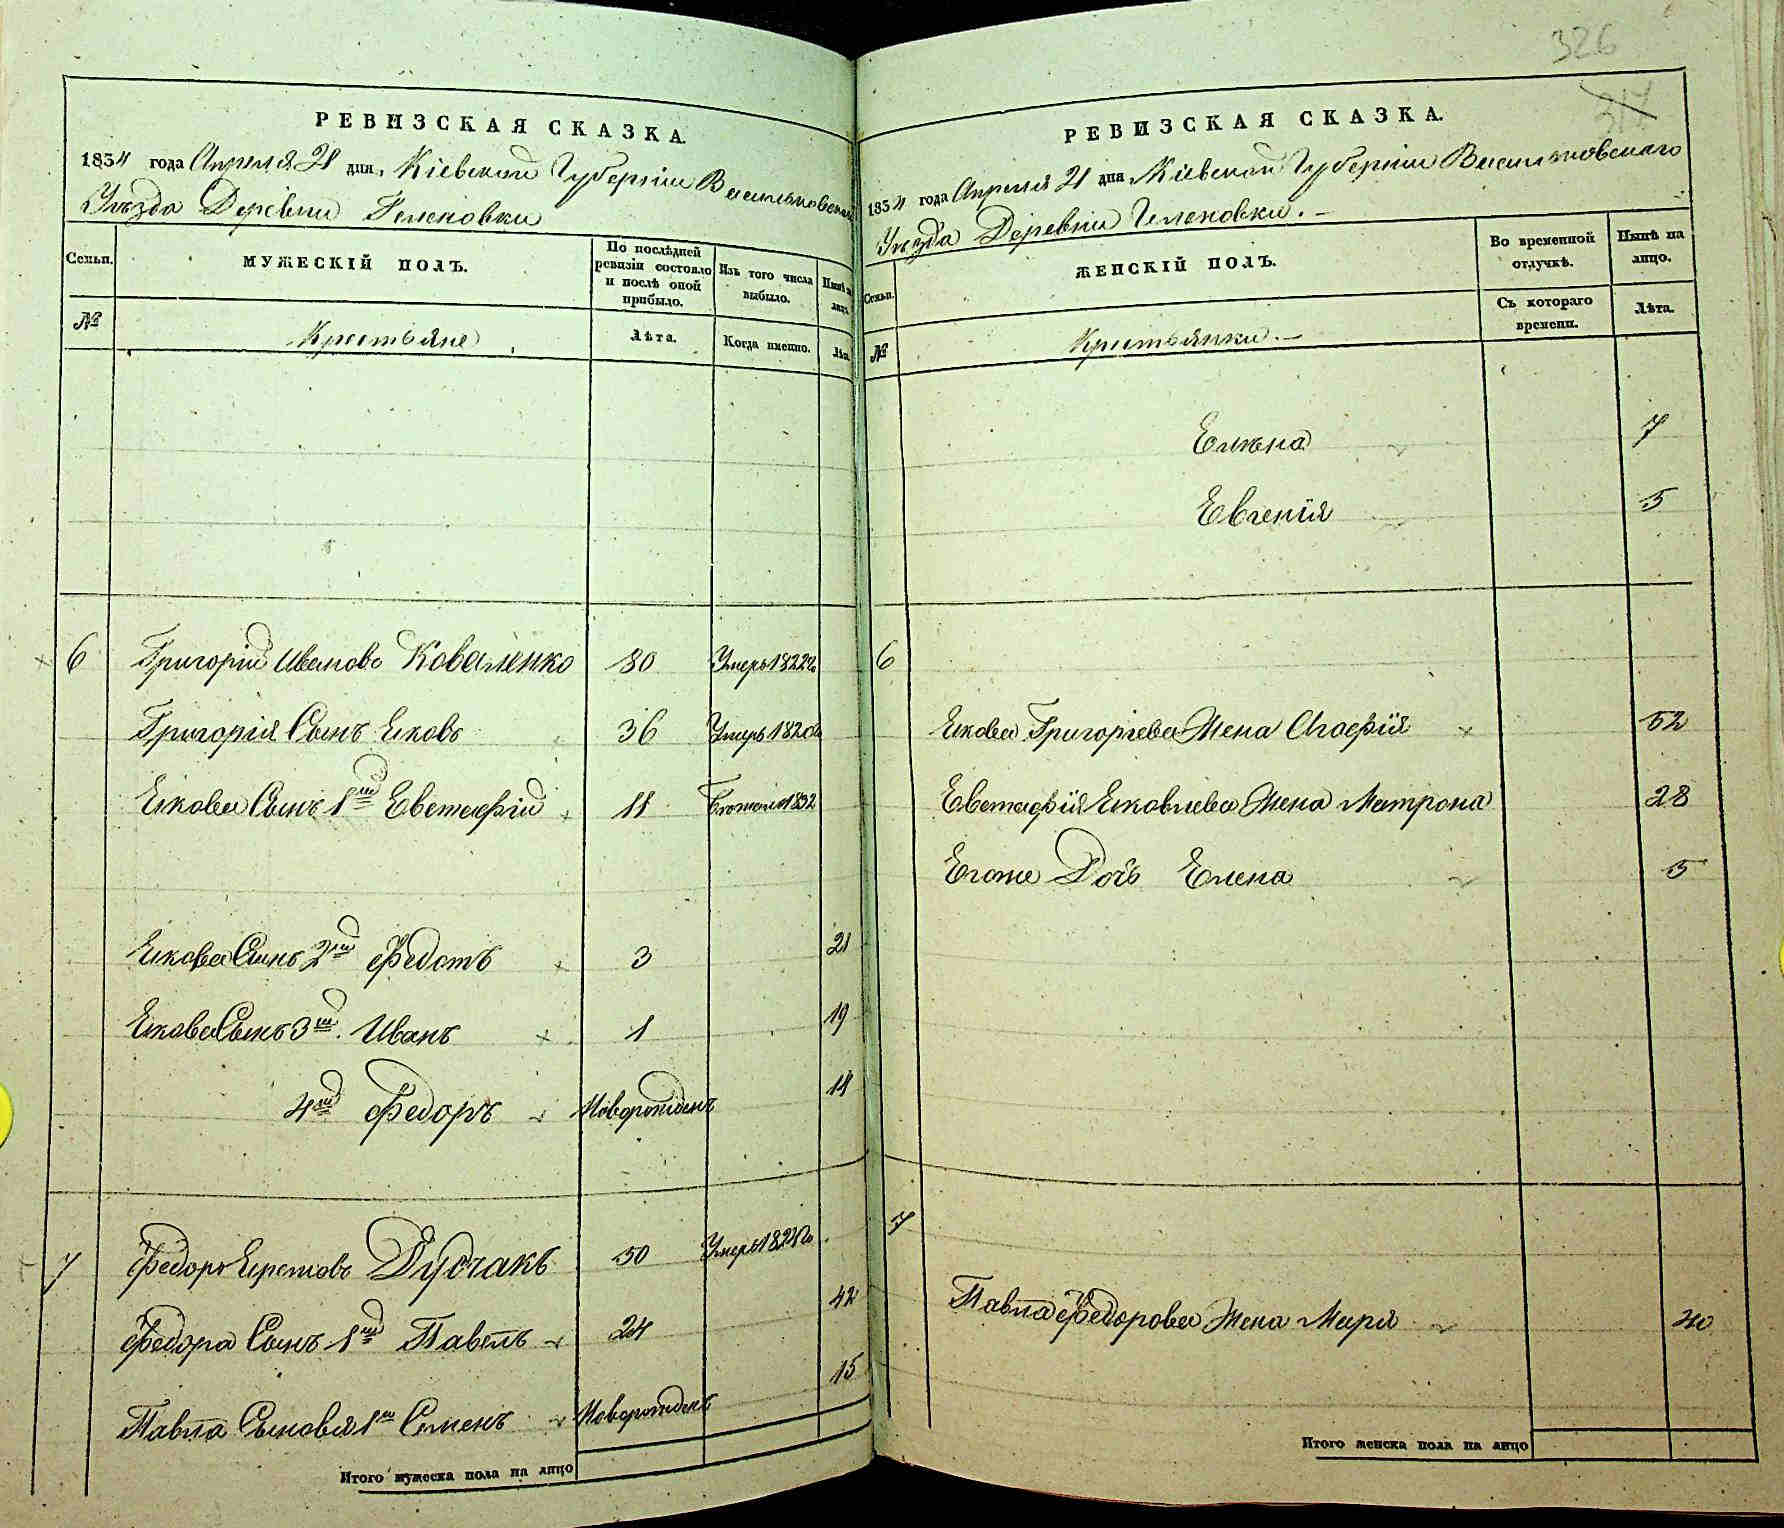 326
317
РЕВИЗСКАЯ СКАЗКА.
1834 года Апреля 21 дня, Кіевской Губерніи Васильковскаго
Уѣзда Деревни Геленовки
Семьи.
МУЖЕСКІЙ ПОЛЪ.
По послѣдней ревизіи состояло и послѣ оной прибыло.
Изъ того числа выбыло.
Нынѣ на лицо.
№
Крестьяне
Лѣта.
Когда именно.
Лѣта.
6 Григорій Ивановъ Коваленко 80 Умеръ 1822го
Григорія Сынъ Яковъ 36 Умеръ 1820го
Якова Сынъ 1й Евстафій 11 1832
Якова Сынъ 2й Федотъ 3 21
Якова Сынъ 3й Иванъ 1 19
4й Федоръ Новорожденъ 14
7 Федоръ Дубчакъ 50 Умеръ 1824го
Федора Сынъ 1й Павелъ 24 42
Павла Сыновья 1й Семенъ Новорожденъ 15
Итого мужеска пола на лицо
РЕВИЗСКАЯ СКАЗКА.
1834 года Апреля 21 дня Кіевской Губерніи Васильковскаго
Уѣзда Деревни Геленовки.
Семьи.
ЖЕНСКІЙ ПОЛЪ.
Во временной отлучкѣ.
Нынѣ на лицо.
№
Крестьянки.
Съ котораго времени.
Лѣта.
Елена 7
Евгенія 5
6
Якова Григоріева Жена Агафія 52
Евстафія Яковлева Жена Матрона 28
Егоже Дочь Елена 5
7
Павла Федорова Жена Марія 40
Итого женска пола на лицо